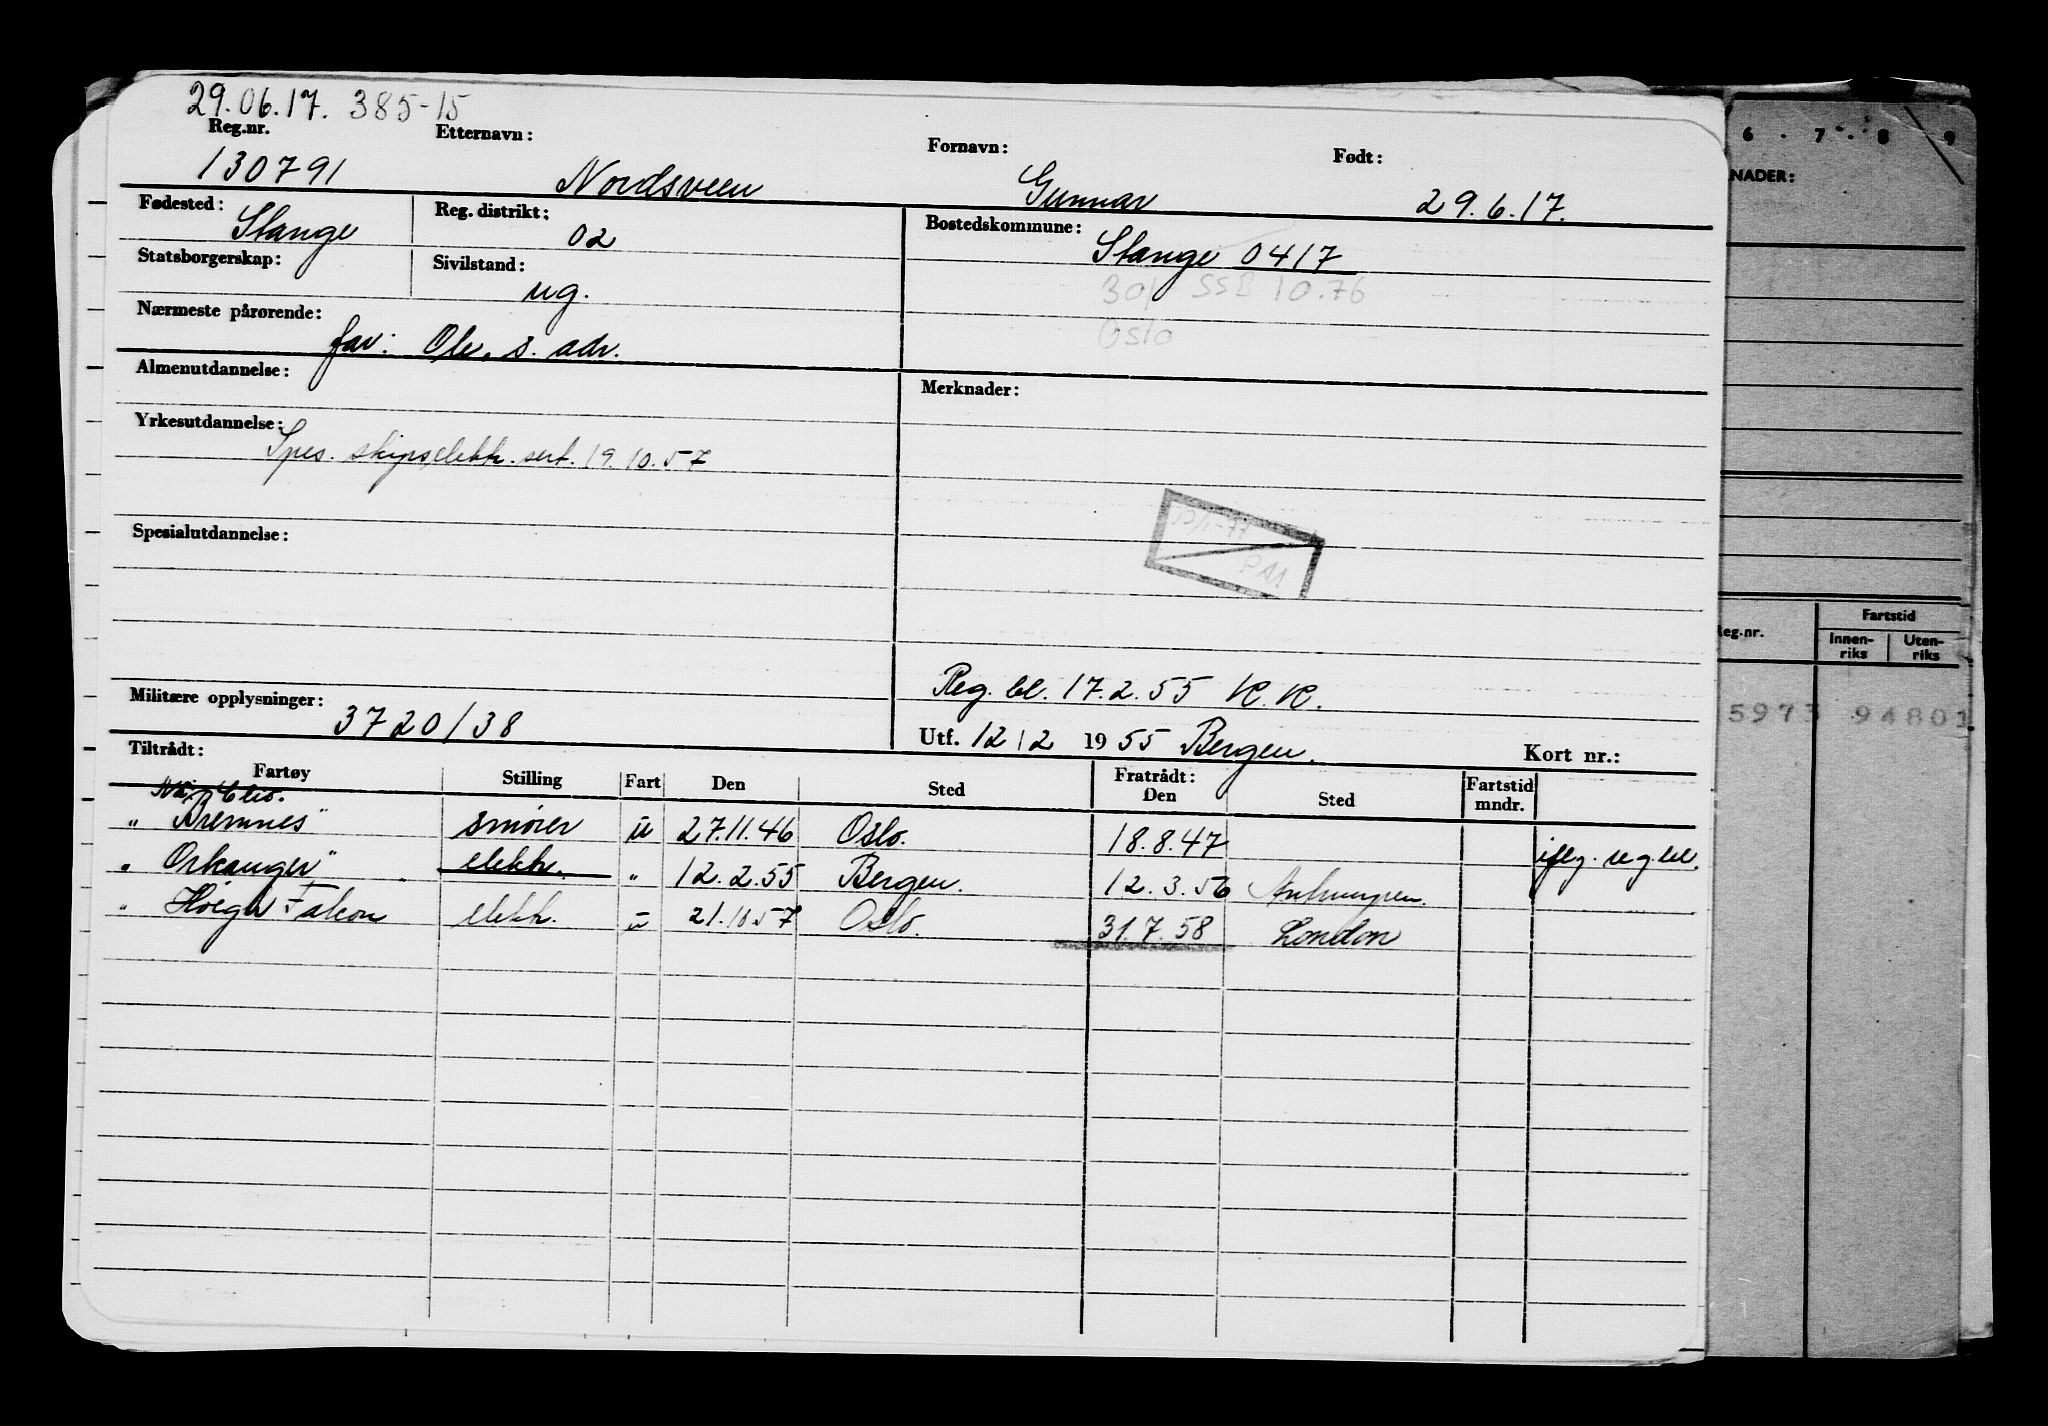 29.06.17. 385-15
Reg.nr. Etternavn: Fornavn: Født:
130791 Nordsveen Gunnar 29.6.17.
Fødested: Stange Reg. distrikt: 02 Bostedskommune: Stange 0417
Statsborgerskap: Sivilstand: ug. 301 SSB 10.76
Oslo
Nærmeste pårørende: far: Ole, s. adr.
Almenutdannelse: Merknader:
Yrkesutdannelse: Spes. skipselektr. sert. 19.10.57
Spesialutdannelse:
Reg. bl. 17.2.55 K.K.
Militære opplysninger: 3720/38
Utf. 12/2 1955 Bergen. Kort nr.:
Tiltrådt: Fratrådt:
Fartøy Stilling Fart Den Sted Den Sted Fartstid mndr.
" Bremnes" smører u 27.11.46 Oslo. 18.8.47 iflg. reg.bl.
" Orkanger" elektr. " 12.2.55 Bergen. 12.3.56 Antwerpen.
" Høegh Falcon elektr. u 21.10.57 Oslo. 31.7.58 London
6 . 7 . 8 . 9
NADER:
Reg.nr. Fartstid
Innen-riks Uten-riks
5973 94801